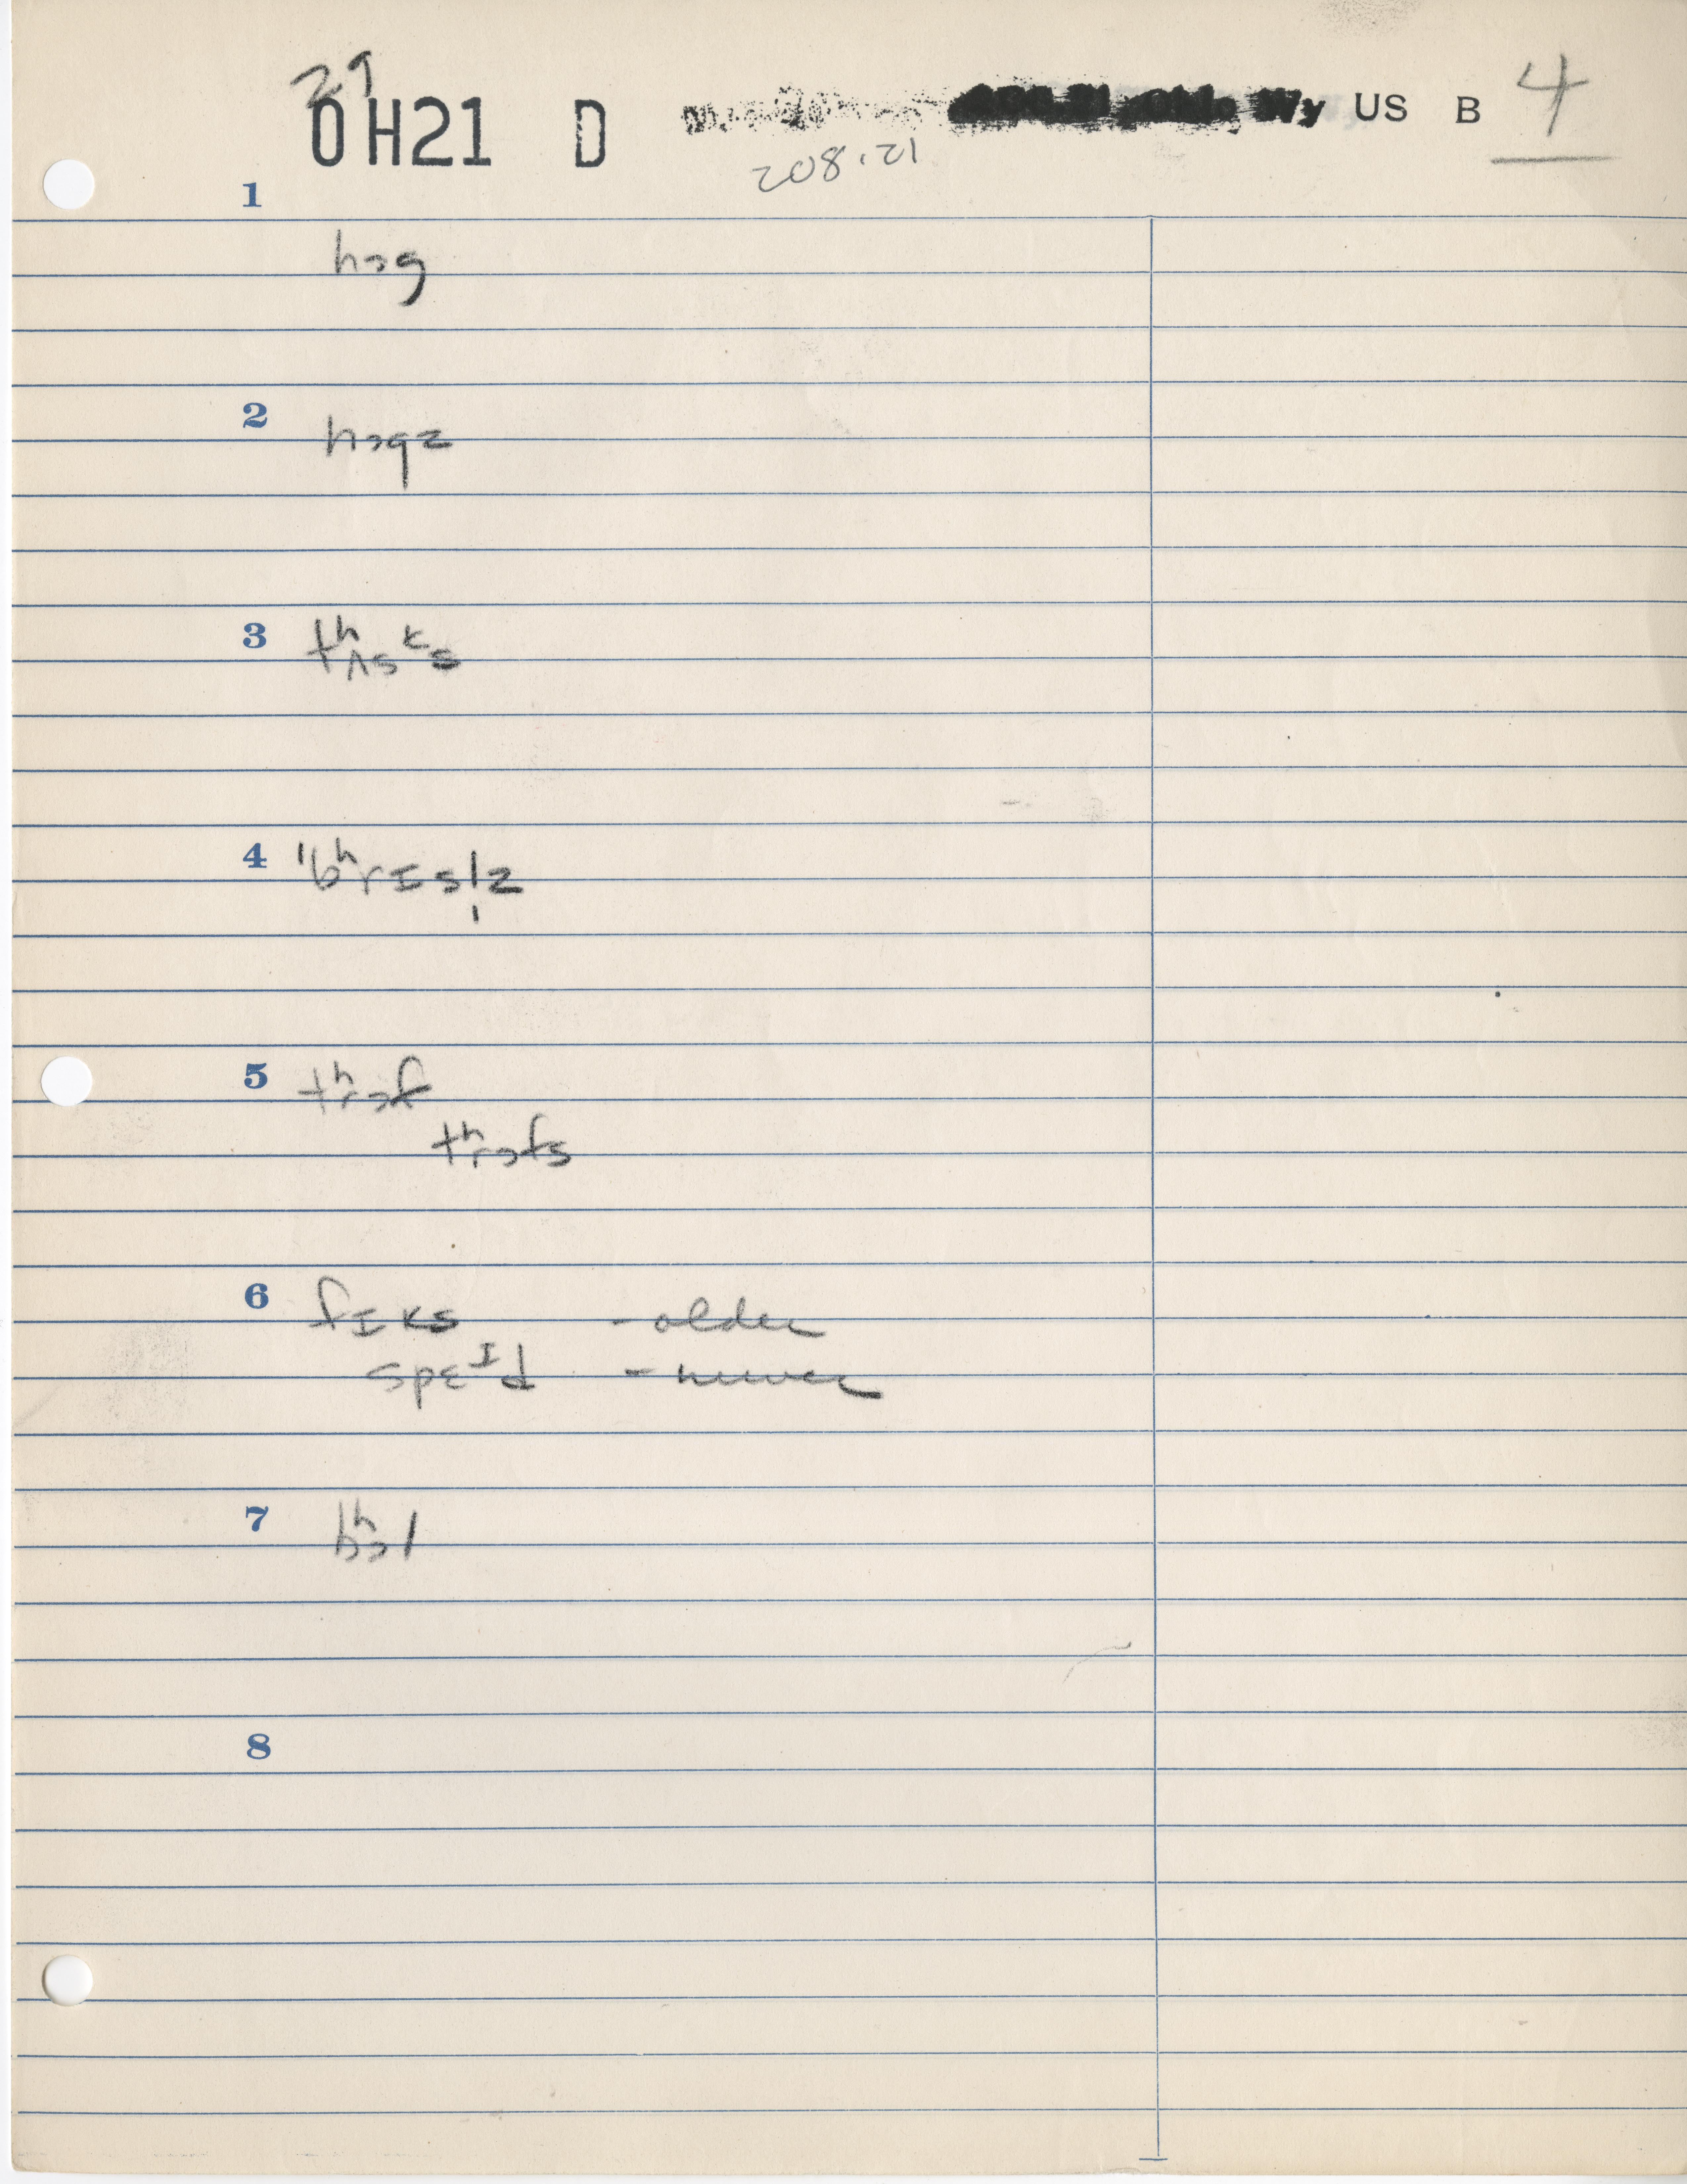 29
OH21 D US B 4
208.21
1
hɔg
2
hɔgz
3
tʰʌsᵏs
4
ˈbʰrɪsl̩z
5
tʰrɔf
tʰrɔfs
6
fɪks - older
speᴵd - newer
7
bʰɔl
8